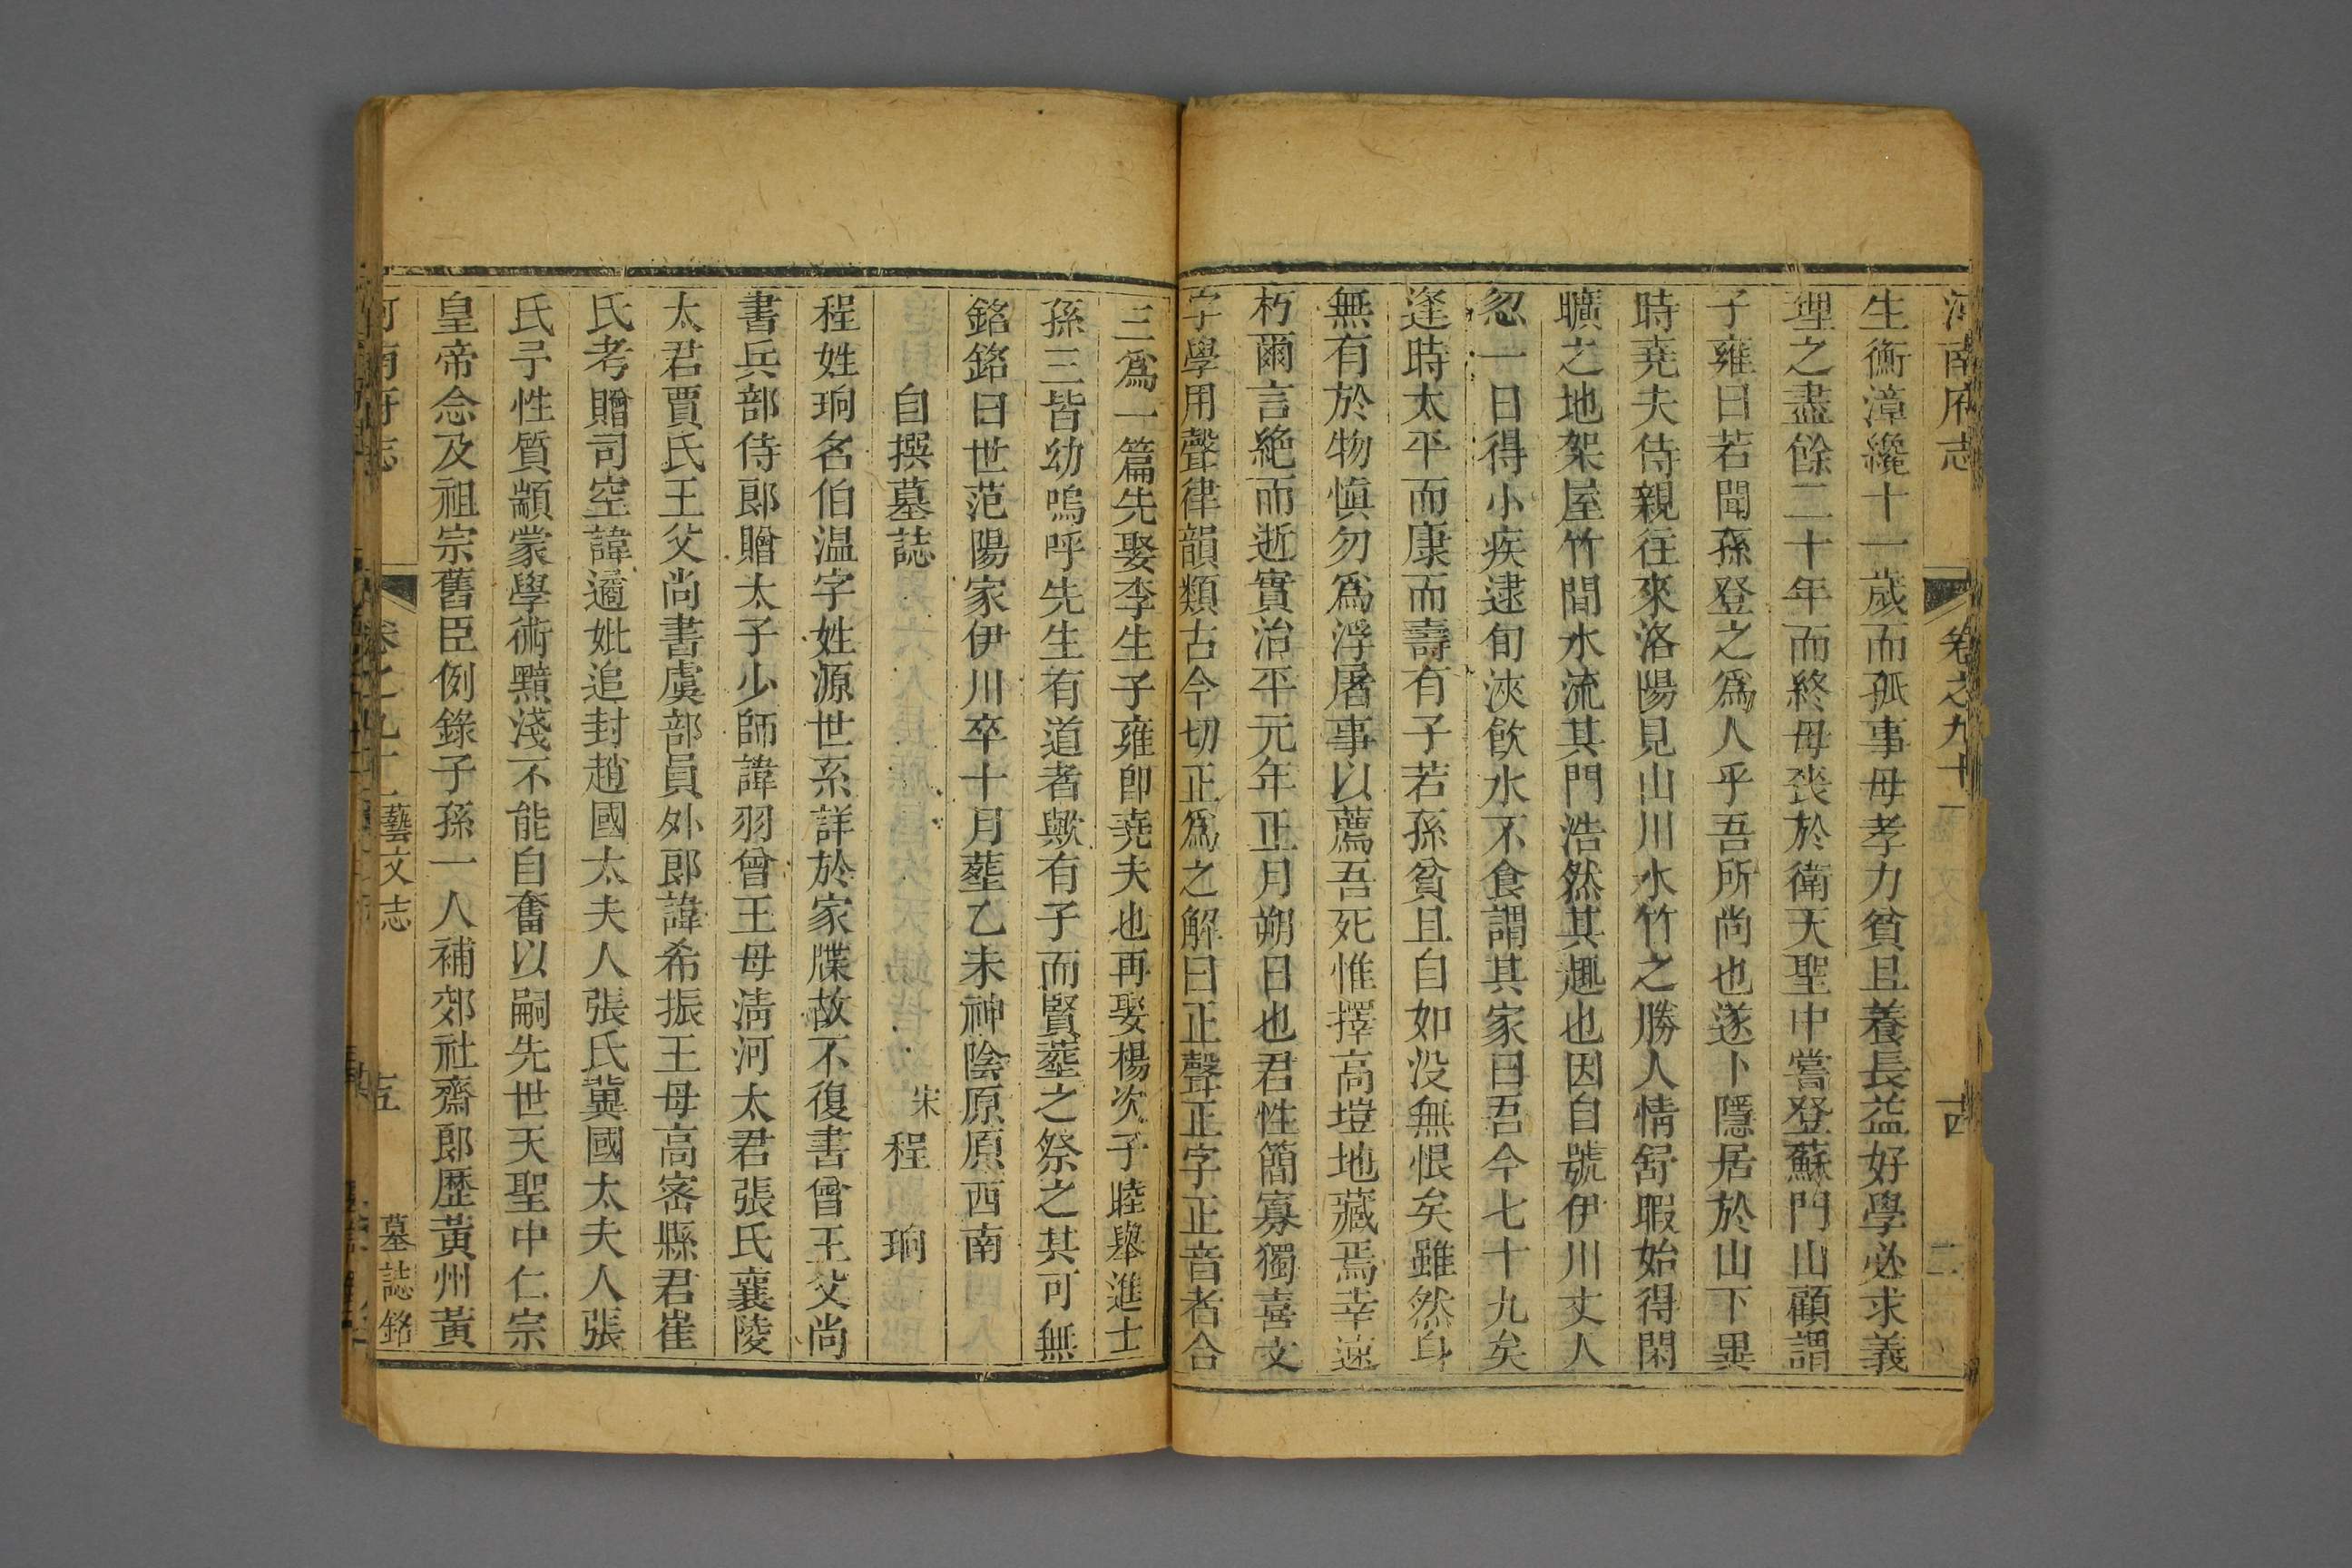 河南府志 卷之九十一 四
生衡漳纔十一歲而孤事母孝力貧且養長益好學必求義
理之盡餘二十年而終母喪於衛天聖中嘗登蘇門山顧謂
子雍曰若聞孫登之爲人乎吾所尚也遂卜隱居於山下異
時堯夫侍親往來洛陽見山川水竹之勝人情舒暇始得閑
曠之地架屋竹間水流其門浩然其趣也因自號伊川丈人
忽一日得小疾逮旬浹飲水不食謂其家曰吾今七十九矣
逢時太平而康而壽有子若孫貧且自如没無恨矣雖然身
無有於物慎勿爲浮屠事以薦吾死惟擇高塏地藏焉幸速
朽爾言絶而逝實治平元年正月朔日也君性簡寡獨喜文
字學用聲律韻類古今切正爲之解曰正聲正字正音者合
三爲一篇先娶李生子雍卽堯夫也再娶楊次子睦舉進士
孫三皆幼嗚呼先生有道者歟有子而賢葬之祭之其可無
銘銘曰世范陽家伊川卒十月葬乙未神陰原原西南
自撰墓誌 宋 程 珦
程姓珦名伯温字姓源世系詳於家牒故不復書曾王父尚
書兵部侍郎贈太子少師諱羽曾王母淸河太君張氏襄陵
太君賈氏王父尚書虞部員外郎諱希振王母高密縣君崔
氏考贈司空諱遹妣追封趙國太夫人張氏冀國太夫人張
氏予性質顓蒙學術黯淺不能自奮以嗣先世天聖中仁宗
皇帝念及祖宗舊臣例錄子孫一人補郊社齋郎歷黃州黃
河南府志 卷之九十一 藝文志 五 墓誌銘